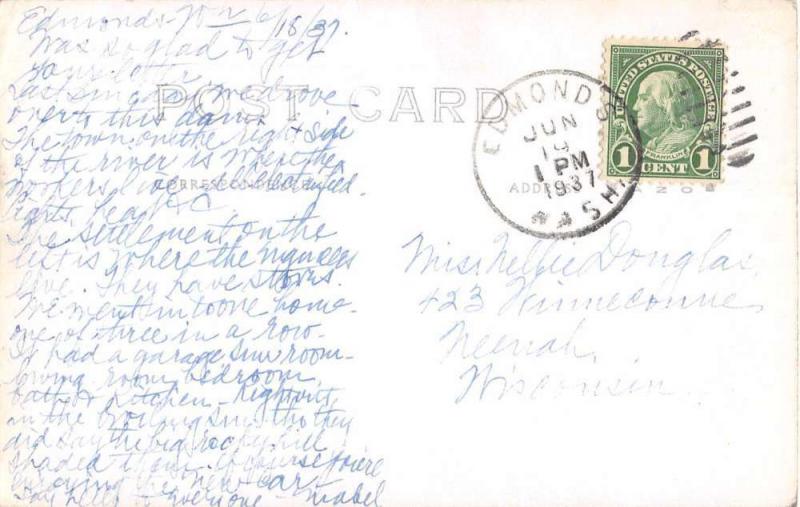 Edmonds - Wn 6/18/37.
Was so glad to get
your letter
Last Sunday we drove
over to this dam.
The town on the right side
of the river is where the
workers live - all electrified.
lights, heat &C
The settlement on the
left is where the
live. They have stores.
We went into one home -
one of three in a row -
It had a garage sun room -
living room, bedroom,
bath & kitchen - Right out
in the boiling sun - tho they
did say the big rocky hill
shaded them. Of course you're
enjoying the new car.
Say hello to everyone - Mabel
POST CARD
CORRESPONDENCE
ADDRESS
AZO
EDMONDS
JUN
1 PM
1937
WASH.
UNITED STATES POSTAGE
FRANKLIN
1 CENT 1
Miss Nellie Douglas,
423 Winneconne
Neenah,
Wisconsin